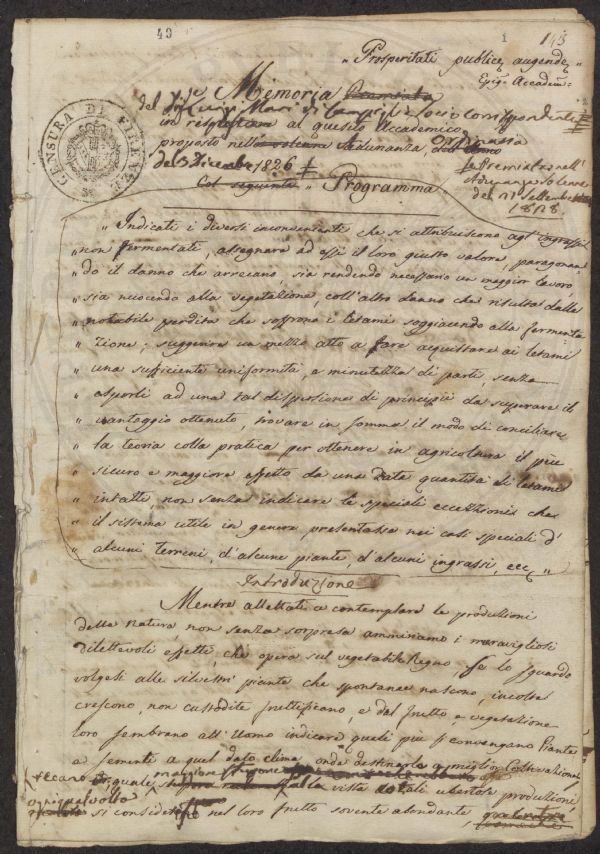 49
1
145
" Prosperitati publicę augendę "
Epig: Accadem:
Memoria Premiata
del Sig.re Luigi Mari di Campigli Socio Corrispondente
in resposta al quesito Accademico
proposto nell' Adunanza, ordinaria
del 3 Dicembre 1826
e Premiata nell'
Adunanza Solenne
del 21 Settembre
1828
Col seguente " Programma "
CENSURA DI FIRENZE
" Indicati i diversi inconvenienti che si attribuiscono agl' ingrassi
" non fermentati, assegnare ad essi il loro giusto valore, paragonan
" do il danno che arrecano, sia rendendo necessario un maggior lavoro,
" sia nuocendo alla vegetazione, coll' altro danno che risulta dalla
" notabile perdita che soffrono i letami soggiacendo alla fermenta
" zione: suggerire un mezzo atto a fare acquistare ai letami
" una sufficiente uniformità, e minutezza di parti, senza
" esporli ad una tal dispersione di principii da superare il
" vantaggio ottenuto, trovare in somma il modo di conciliare
" la teoria colla pratica per ottenere in agricoltura il più
" sicuro e maggiore effetto da una data quantità di letame
" intatti, non senza indicare le speciali eccezzioni che
" il sistema utile in genere presentasse nei casi speciali d'
" alcuni terreni, d'alcune piante, d'alcuni ingrassi, ecc. "
Introduzione
Mentre allettati a contemplare le produzioni
della natura, non senza sorpresa ammiriamo i meravigliosi
dilettevoli effetti, che opera sul vegetabile Regno, se lo sguardo
volgesi alle silvestri piante che spontanee nascono, incolte
crescono, non custodite fruttificano, e dal frutto, e vegetazione
loro sembrano all' Uomo indicare quali più si convengano Piante
e sementi a quel dato clima, onde destinarle a miglior Coltivazione,
recano maggiore alla vista totali ubertose produzioni,
ogniqualvolta si consideri nel loro frutto sovente abondante